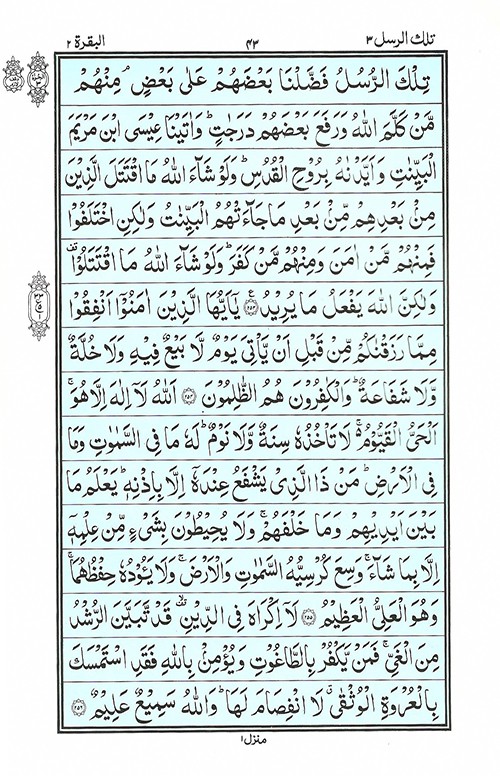 تلك الرسل ٣ ٤٣ البقرة ٢
تِلْكَ الرُّسُلُ فَضَّلْنَا بَعْضَهُمْ عَلٰى بَعْضٍ ۘ مِنْهُمْ
مَّنْ كَلَّمَ اللّٰهُ وَرَفَعَ بَعْضَهُمْ دَرَجٰتٍ ؕ وَاٰتَيْنَا عِيْسَى ابْنَ مَرْيَمَ
الْبَيِّنٰتِ وَاَيَّدْنٰهُ بِرُوْحِ الْقُدُسِ ؕ وَلَوْ شَآءَ اللّٰهُ مَا اقْتَتَلَ الَّذِيْنَ
مِنْۢ بَعْدِهِمْ مِّنْۢ بَعْدِ مَا جَآءَتْهُمُ الْبَيِّنٰتُ وَلٰكِنِ اخْتَلَفُوْا
فَمِنْهُمْ مَّنْ اٰمَنَ وَمِنْهُمْ مَّنْ كَفَرَ ؕ وَلَوْ شَآءَ اللّٰهُ مَا اقْتَتَلُوْا ۟
وَلٰكِنَّ اللّٰهَ يَفْعَلُ مَا يُرِيْدُ ۠ ﴿٢٥٣﴾ يٰۤاَيُّهَا الَّذِيْنَ اٰمَنُوْۤا اَنْفِقُوْا
مِمَّا رَزَقْنٰكُمْ مِّنْ قَبْلِ اَنْ يَّاْتِىَ يَوْمٌ لَّا بَيْعٌ فِيْهِ وَلَا خُلَّةٌ
وَّلَا شَفَاعَةٌ ؕ وَالْكٰفِرُوْنَ هُمُ الظّٰلِمُوْنَ ﴿٢٥٤﴾ اَللّٰهُ لَاۤ اِلٰهَ اِلَّا هُوَ ۚ
اَلْحَىُّ الْقَيُّوْمُ ۚ لَا تَاْخُذُهٗ سِنَةٌ وَّلَا نَوْمٌ ؕ لَهٗ مَا فِى السَّمٰوٰتِ وَمَا
فِى الْاَرْضِ ؕ مَنْ ذَا الَّذِىْ يَشْفَعُ عِنْدَهٗۤ اِلَّا بِاِذْنِهٖ ؕ يَعْلَمُ مَا
بَيْنَ اَيْدِيْهِمْ وَمَا خَلْفَهُمْ ۚ وَلَا يُحِيْطُوْنَ بِشَىْءٍ مِّنْ عِلْمِهٖۤ
اِلَّا بِمَا شَآءَ ۚ وَسِعَ كُرْسِيُّهُ السَّمٰوٰتِ وَالْاَرْضَ ۚ وَلَا يَـُٔوْدُهٗ حِفْظُهُمَا ۚ
وَهُوَ الْعَلِىُّ الْعَظِيْمُ ﴿٢٥٥﴾ لَاۤ اِكْرَاهَ فِى الدِّيْنِ ۙ قَدْ تَّبَيَّنَ الرُّشْدُ
مِنَ الْغَىِّ ۚ فَمَنْ يَّكْفُرْ بِالطَّاغُوْتِ وَيُؤْمِنْۢ بِاللّٰهِ فَقَدِ اسْتَمْسَكَ
بِالْعُرْوَةِ الْوُثْقٰى ۗ لَا انْفِصَامَ لَهَا ؕ وَاللّٰهُ سَمِيْعٌ عَلِيْمٌ ﴿٢٥٦﴾
منزل ١